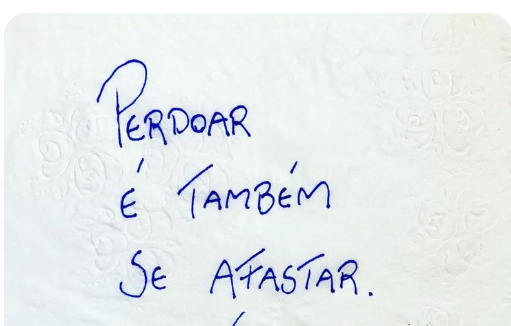 PERDOAR
É TAMBÉM
SE AFASTAR.